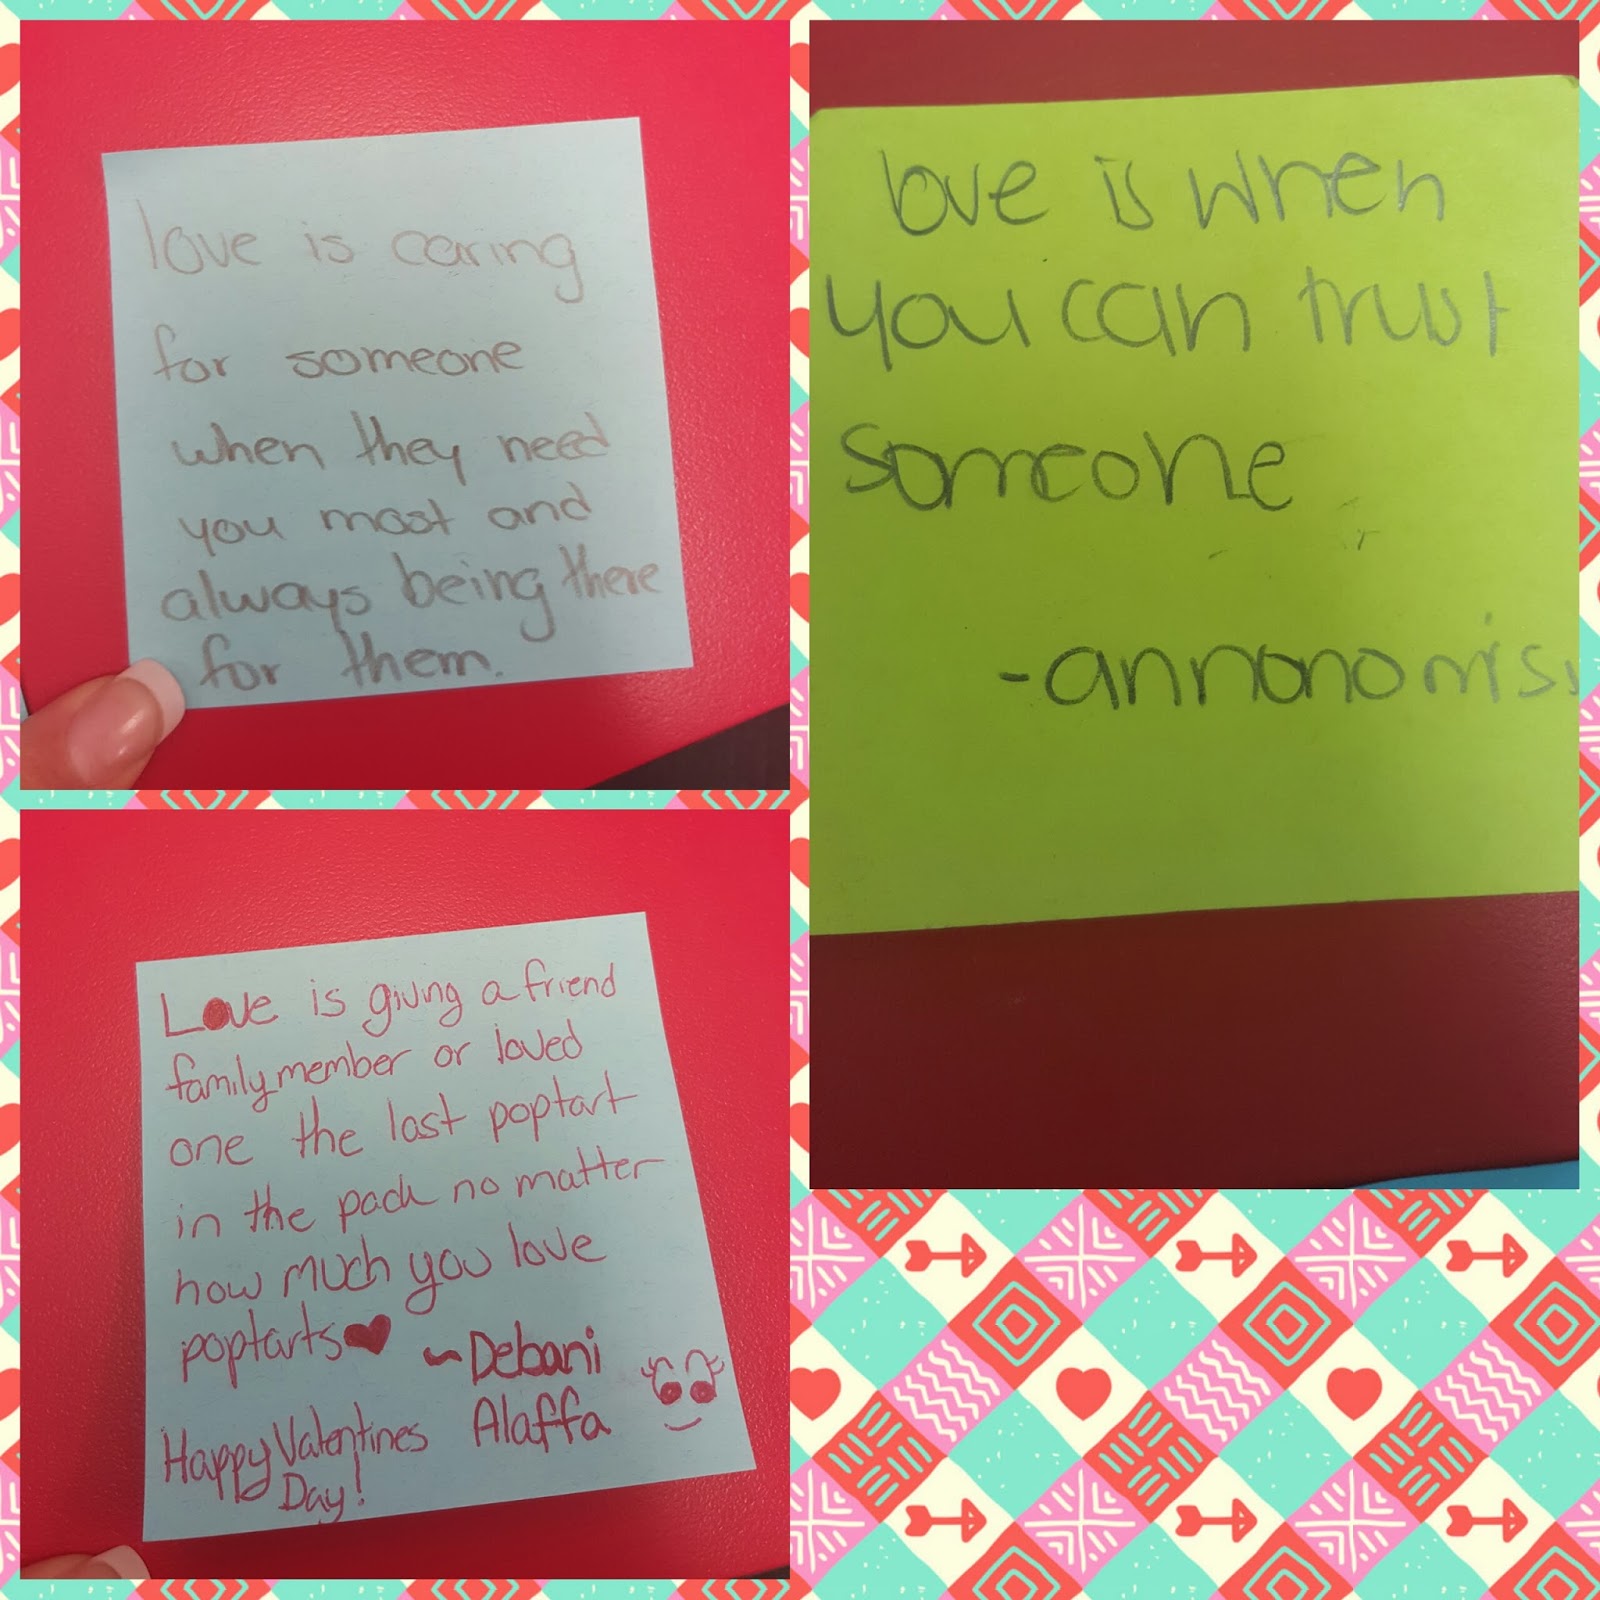 love is caring
for someone
when they need
you most and
always being there
for them.
love is when
you can trust
someone
-annonomis
Love is giving a friend
family member or loved
one the last poptart
in the pack no matter
how much you love
poptarts
~Debani
Alaffa
Happy Valentines
Day!